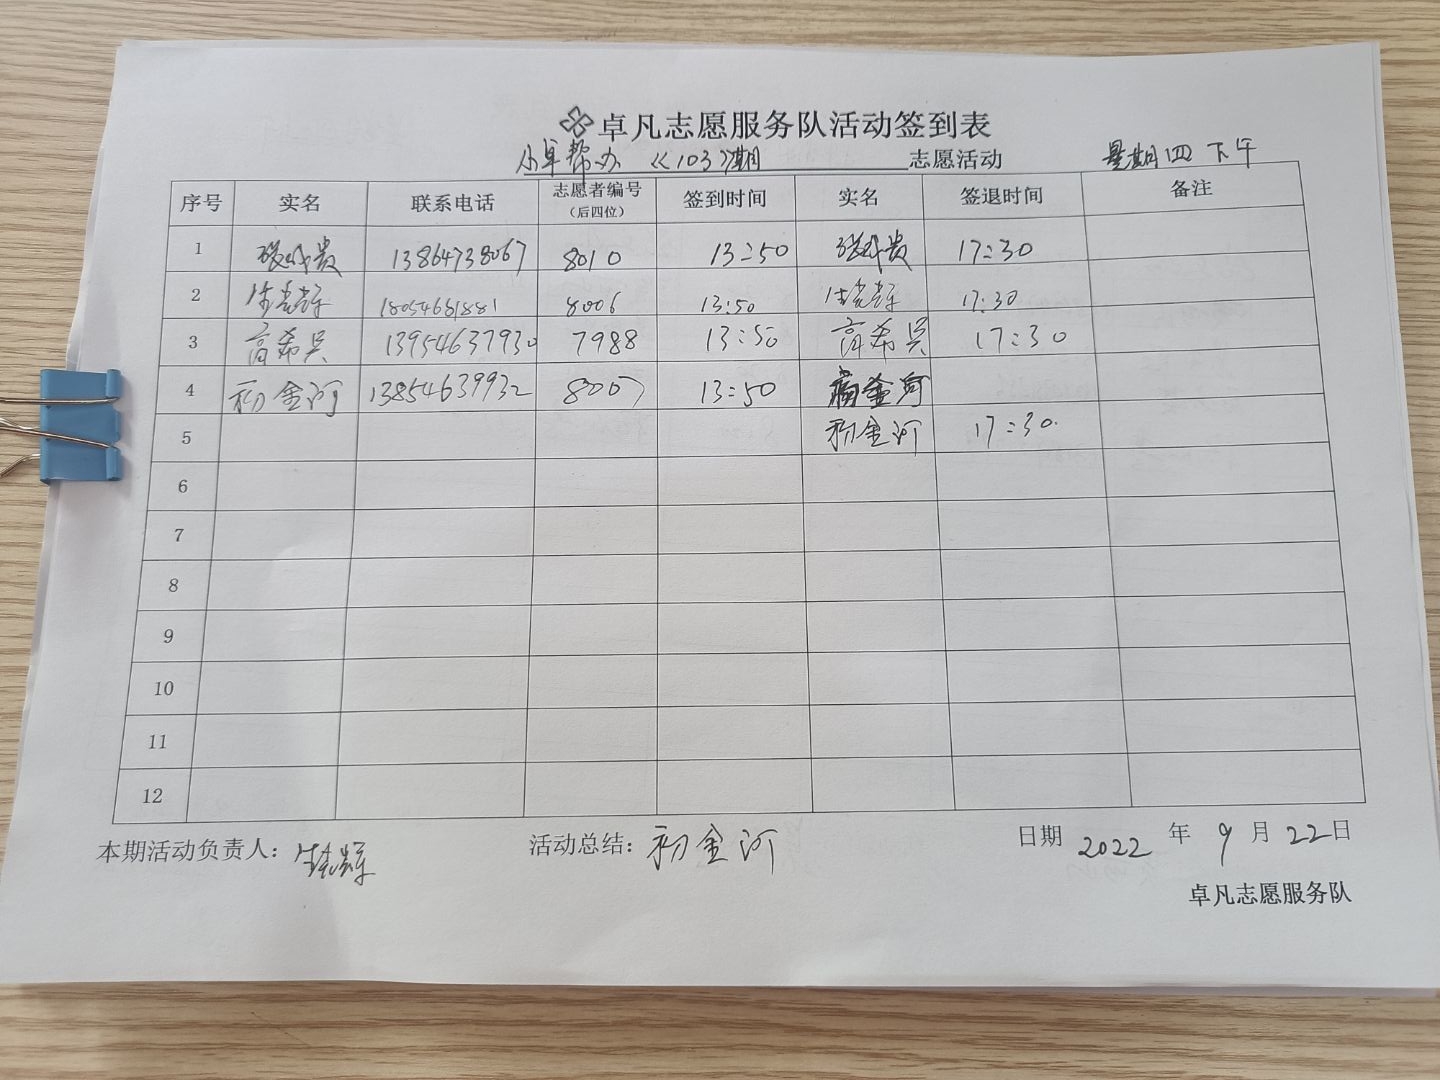 卓凡志愿服务队活动签到表
小卓帮办 《103》期 志愿活动 星期四 下午
序号 实名 联系电话 志愿者编号（后四位） 签到时间 实名 签退时间 备注
1 13864738067 8010 13:50 17:30
2 18054681881 8006 13:50 17:30
3 高希吴 13954637930 7988 13:50 高希吴 17:30
4 初金河 13854639932 8007 13:50
5 初金河 17:30
6
7
8
9
10
11
12
本期活动负责人： 活动总结：初金河 日期 2022 年 9 月 22日
卓凡志愿服务队